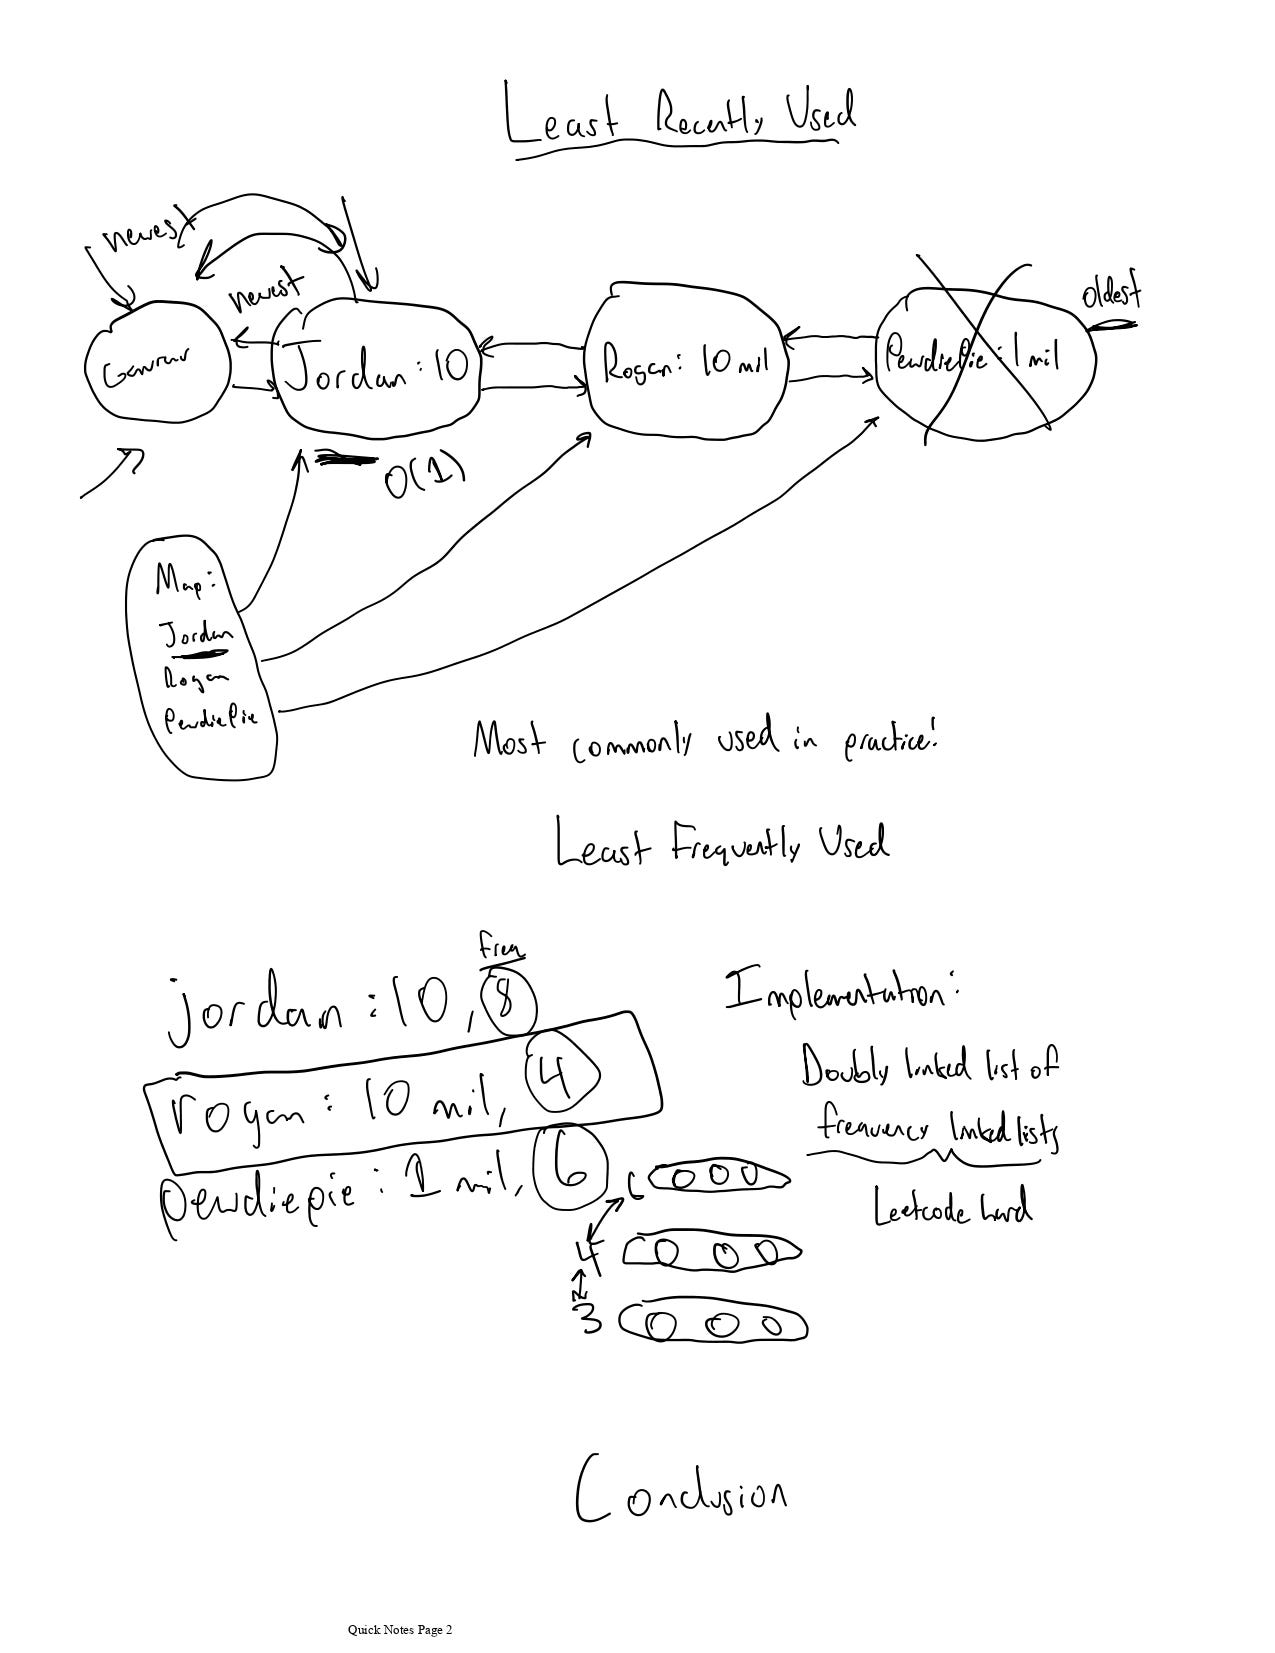 Least Recently Used
newest
newest
oldest
Jordan: 10
Rogan: 10 mil
PewdiePie: 1 mil
O(1)
Map:
Jordan
Rogan
PewdiePie
Most commonly used in practice!
Least Frequently Used
freq
jordan: 10, 8
rogan: 10 mil, 4
pewdiepie: 1 mil, 6
Implementation:
Doubly linked list of
frequency linked lists
Leetcode hard
6
4
3
Conclusion
Quick Notes Page 2